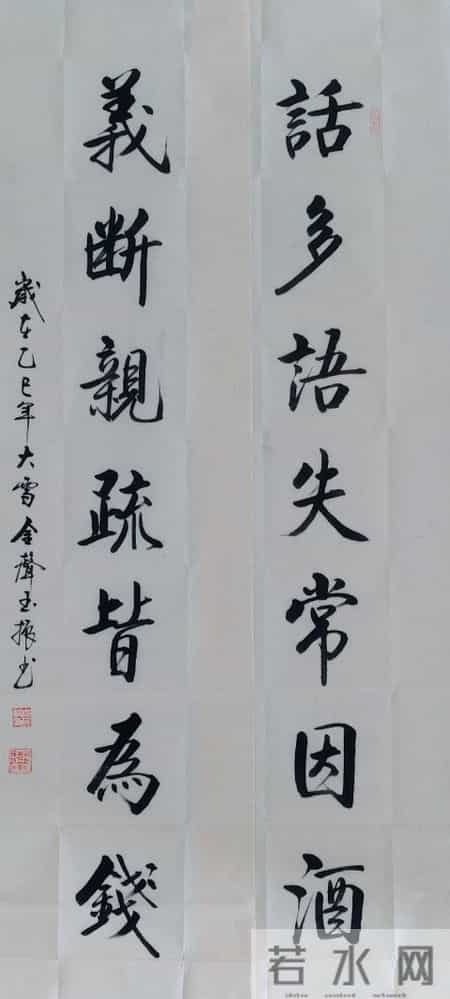 話多語失常因酒
義断親疏皆為錢
歲在乙巳年大雪金聲玉振书
若水网